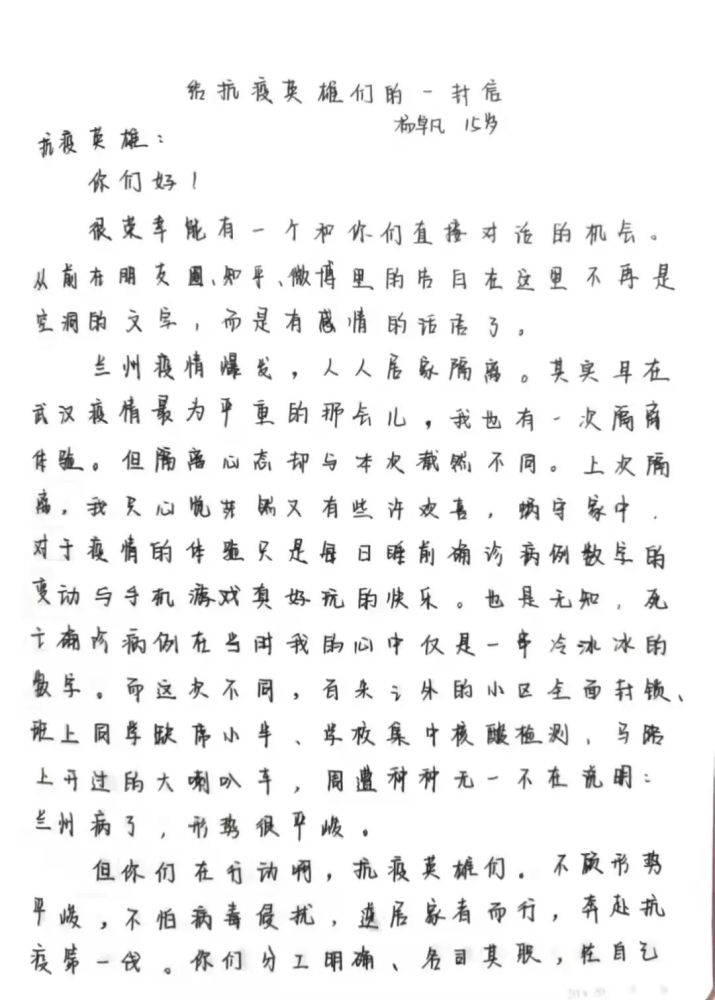 给抗疫英雄们的一封信
杨卓凡 15岁
抗疫英雄：
你们好！
很荣幸能有一个和你们直接对话的机会。
从前在朋友圈、知乎、微博里的告白在这里不再是
空洞的文字，而是有感情的话语了。
兰州疫情爆发，人人居家隔离。其实早在
武汉疫情最为严重的那会儿，我也有一次隔离
体验。但隔离心态却与本次截然不同。上次隔
离，我只心觉茫然又有些许欢喜，蜗守家中，
对于疫情的体验只是每日睡前确诊病例数字的
变动与手机游戏真好玩的快乐。也是无知，死
亡确诊病例在当时我的心中仅是一串冷冰冰的
数字。而这次不同，百米之外的小区全面封锁、
班上同学缺席小半、学校集中核酸检测、马路
上开过的大喇叭车，周遭种种无一不在说明：
兰州病了，形势很严峻。
但你们在行动啊，抗疫英雄们。不顾形势
严峻，不怕病毒侵扰，逆居家者而行，奔赴抗
疫第一线。你们分工明确、各司其职，在自己